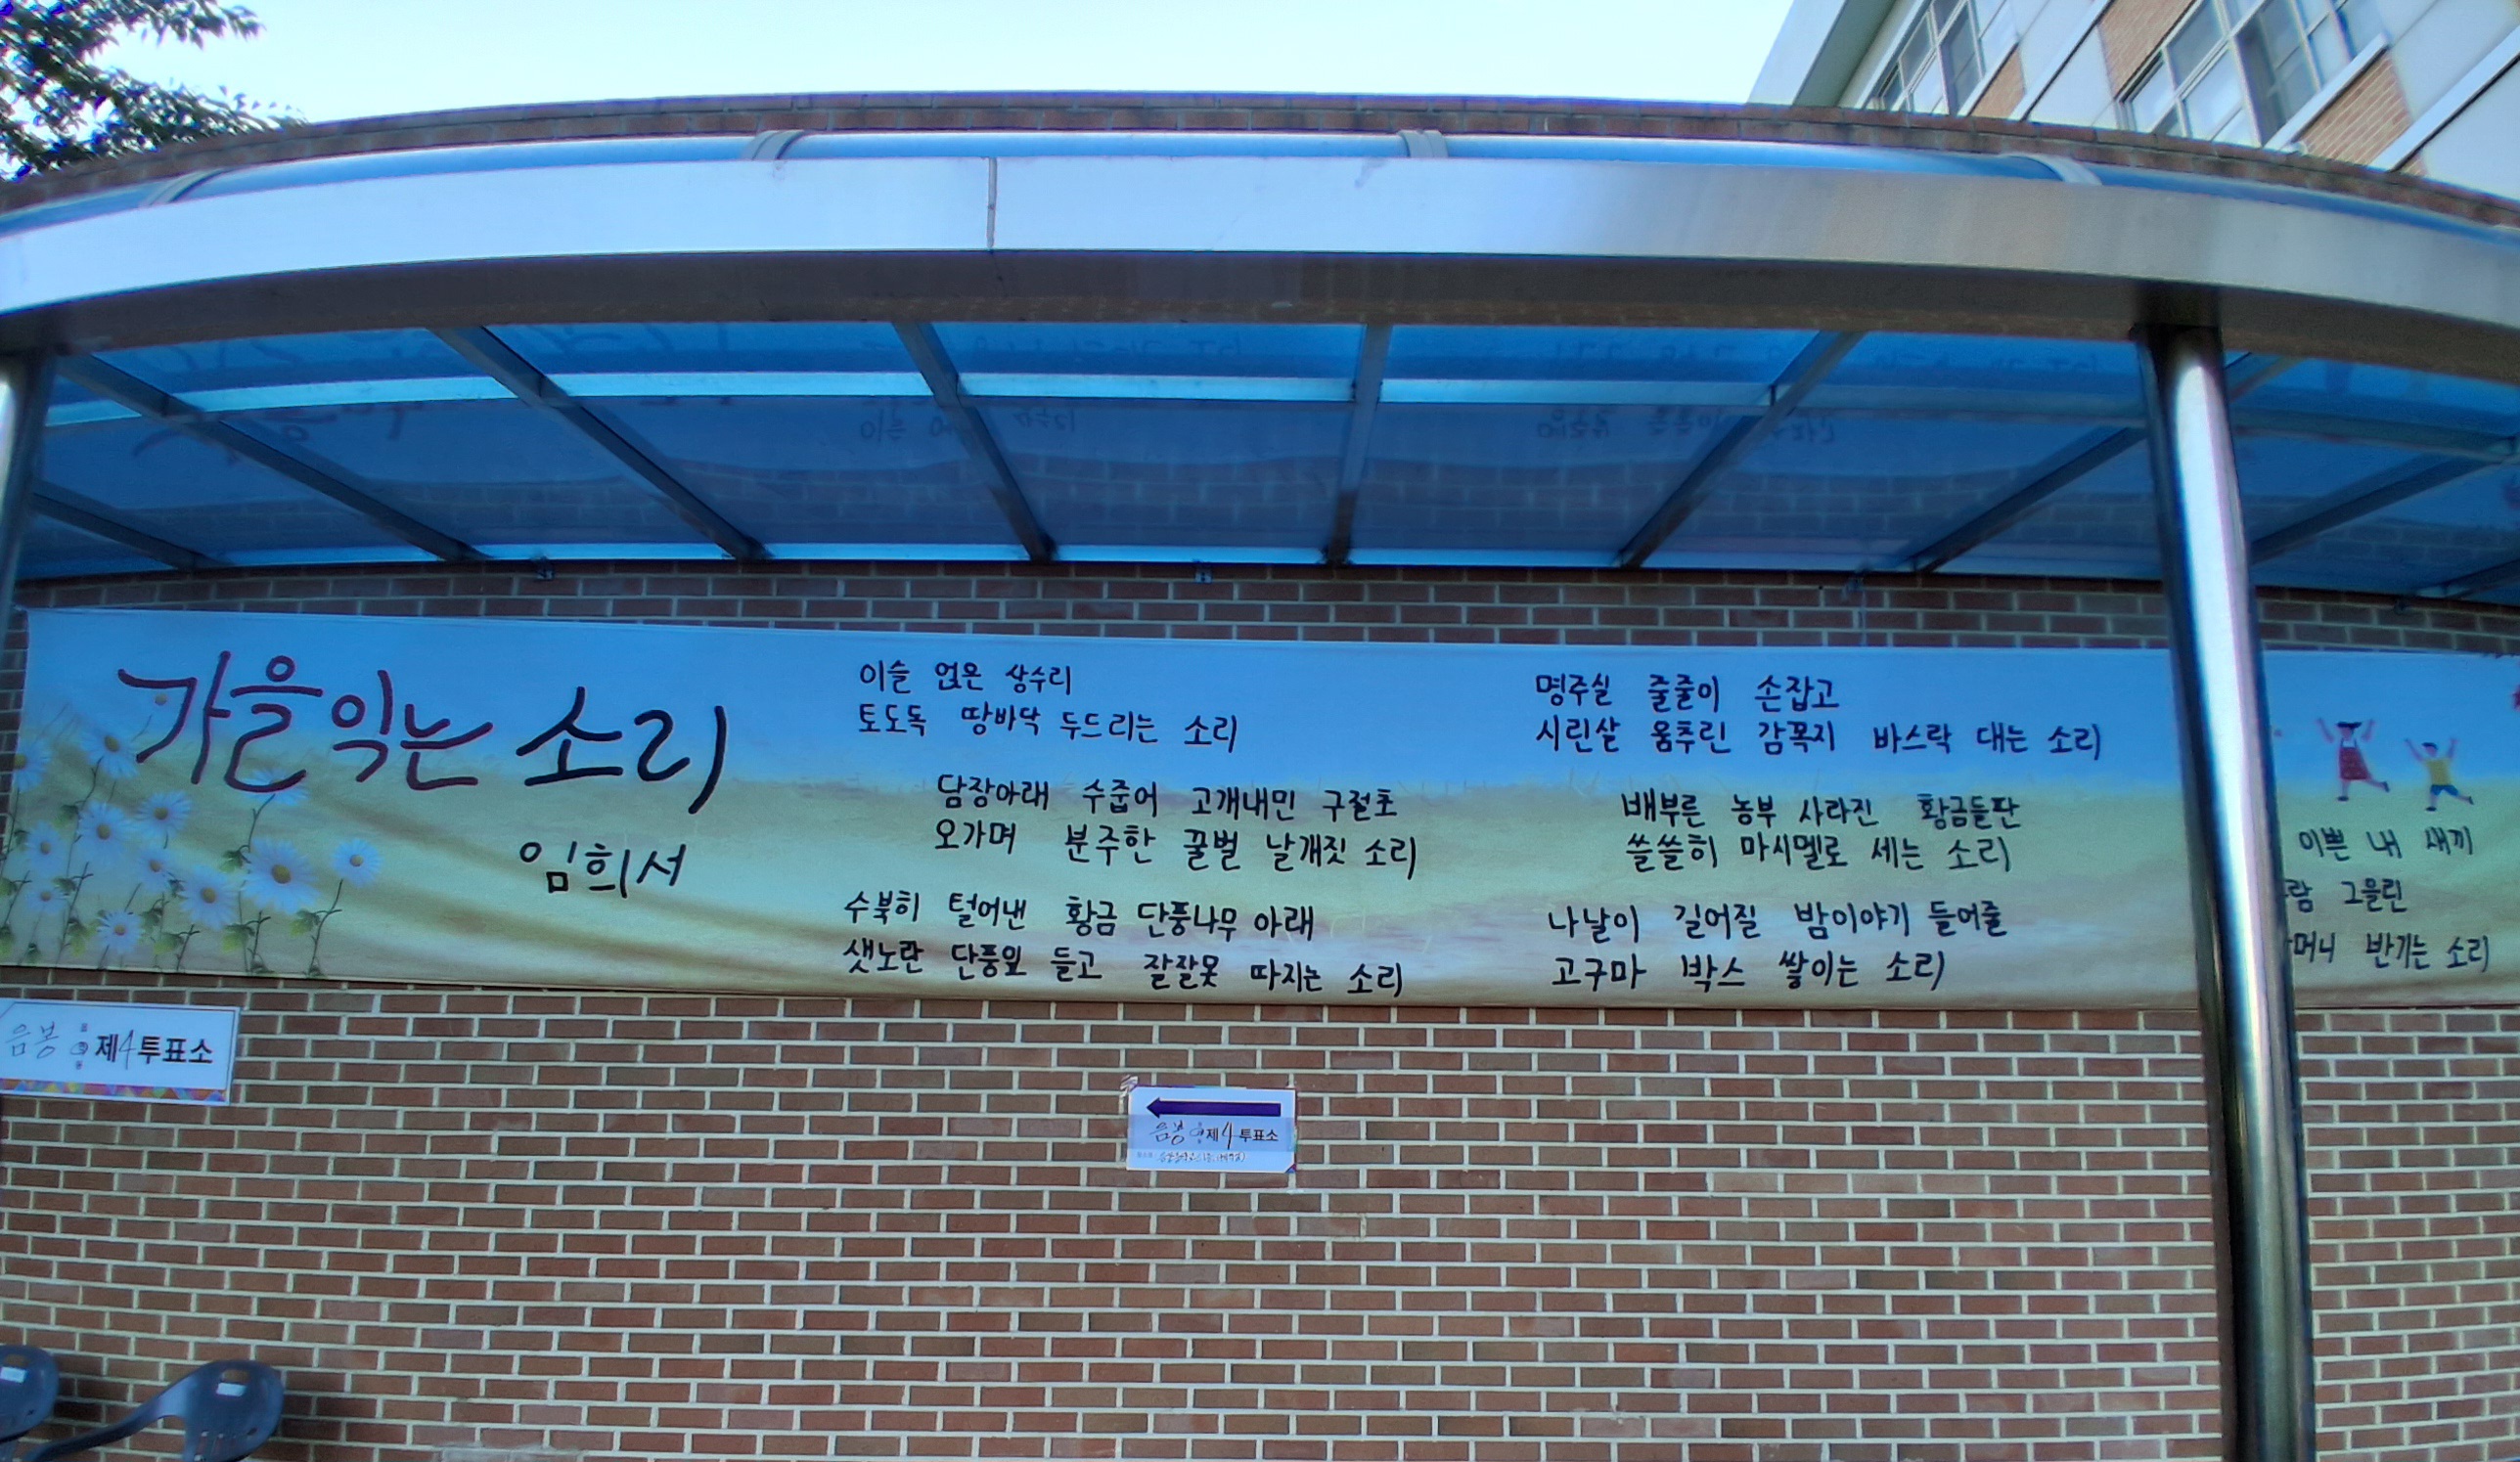 가을 익는 소리
임희서
이슬 얹은 상수리
토도독 땅바닥 두드리는 소리
담장아래 수줍어 고개내민 구절초
오가며 분주한 꿀벌 날개짓 소리
수북히 털어낸 황금 단풍나무 아래
샛노란 단풍잎 들고 잘잘못 따지는 소리
명주실 줄줄이 손잡고
시린살 움추린 감꼭지 바스락 대는 소리
배부른 농부 사라진 황금들판
쓸쓸히 마시멜로 세는 소리
나날이 길어질 밤이야기 들어줄
고구마 박스 쌓이는 소리
이쁜 내 새끼
그을린
반기는 소리
음봉 제4투표소
음봉 제4투표소